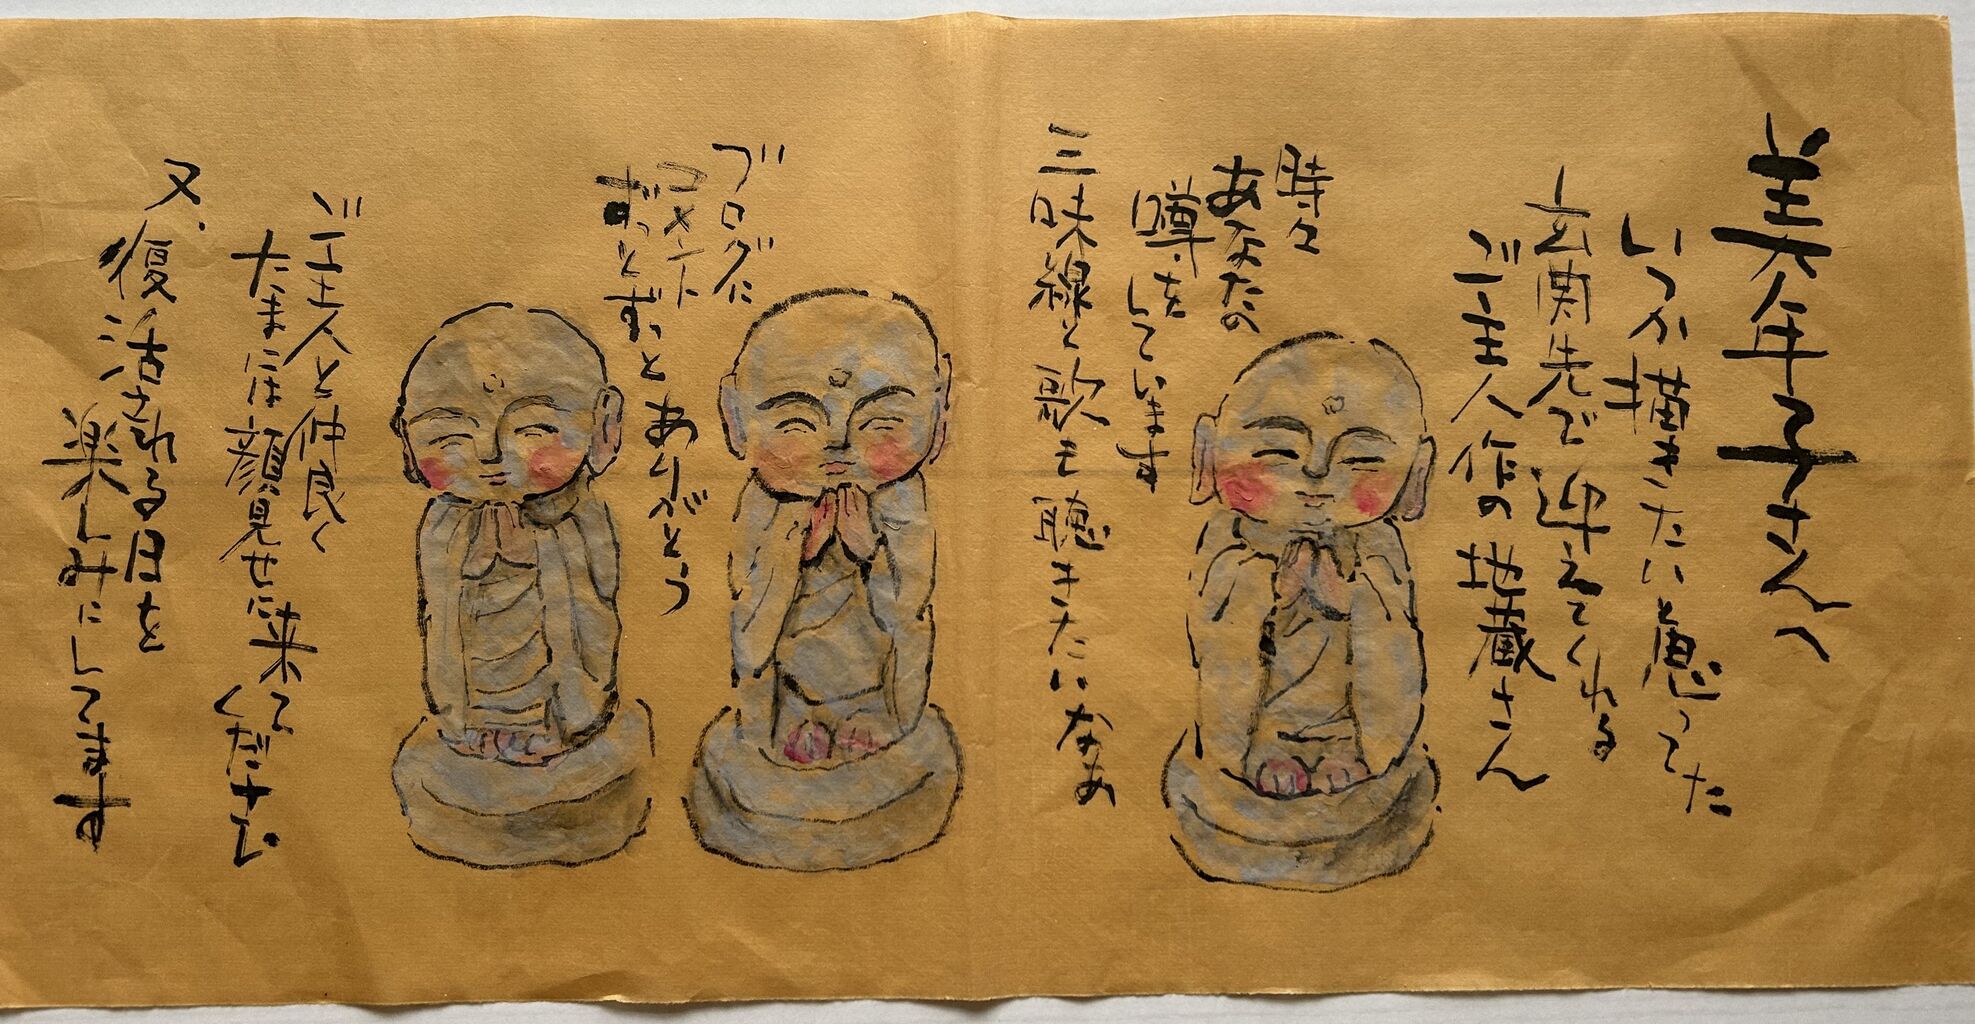 美年子さんへ
いつか描きたいと思ってた
玄関先で迎えてくれる
ご主人作の地蔵さん
時々
あなたの
噂をしています
三味線と歌も聴きたいなあ
ブログに
コメント
ずっとずっとありがとう
ご主人と仲良く
たまには顔見せに来て
ください
又、復活される日を
楽しみにしてます